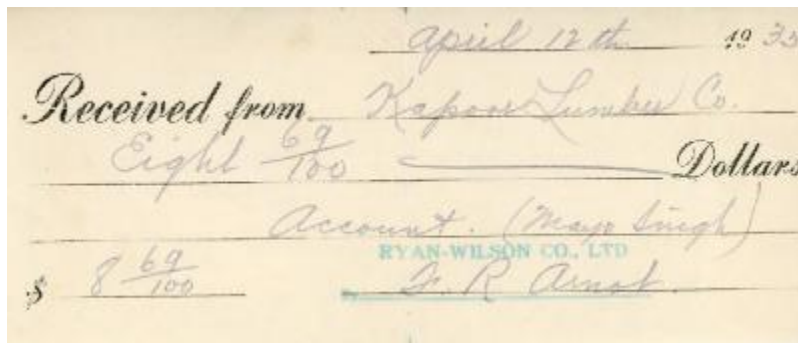 April 12th 1935
Received from Kapoor Lumber Co.
Eight 69/100 Dollars
Account. (Mayo Singh)
RYAN-WILSON CO., LTD
$ 8 69/100 F. R. Arnot.